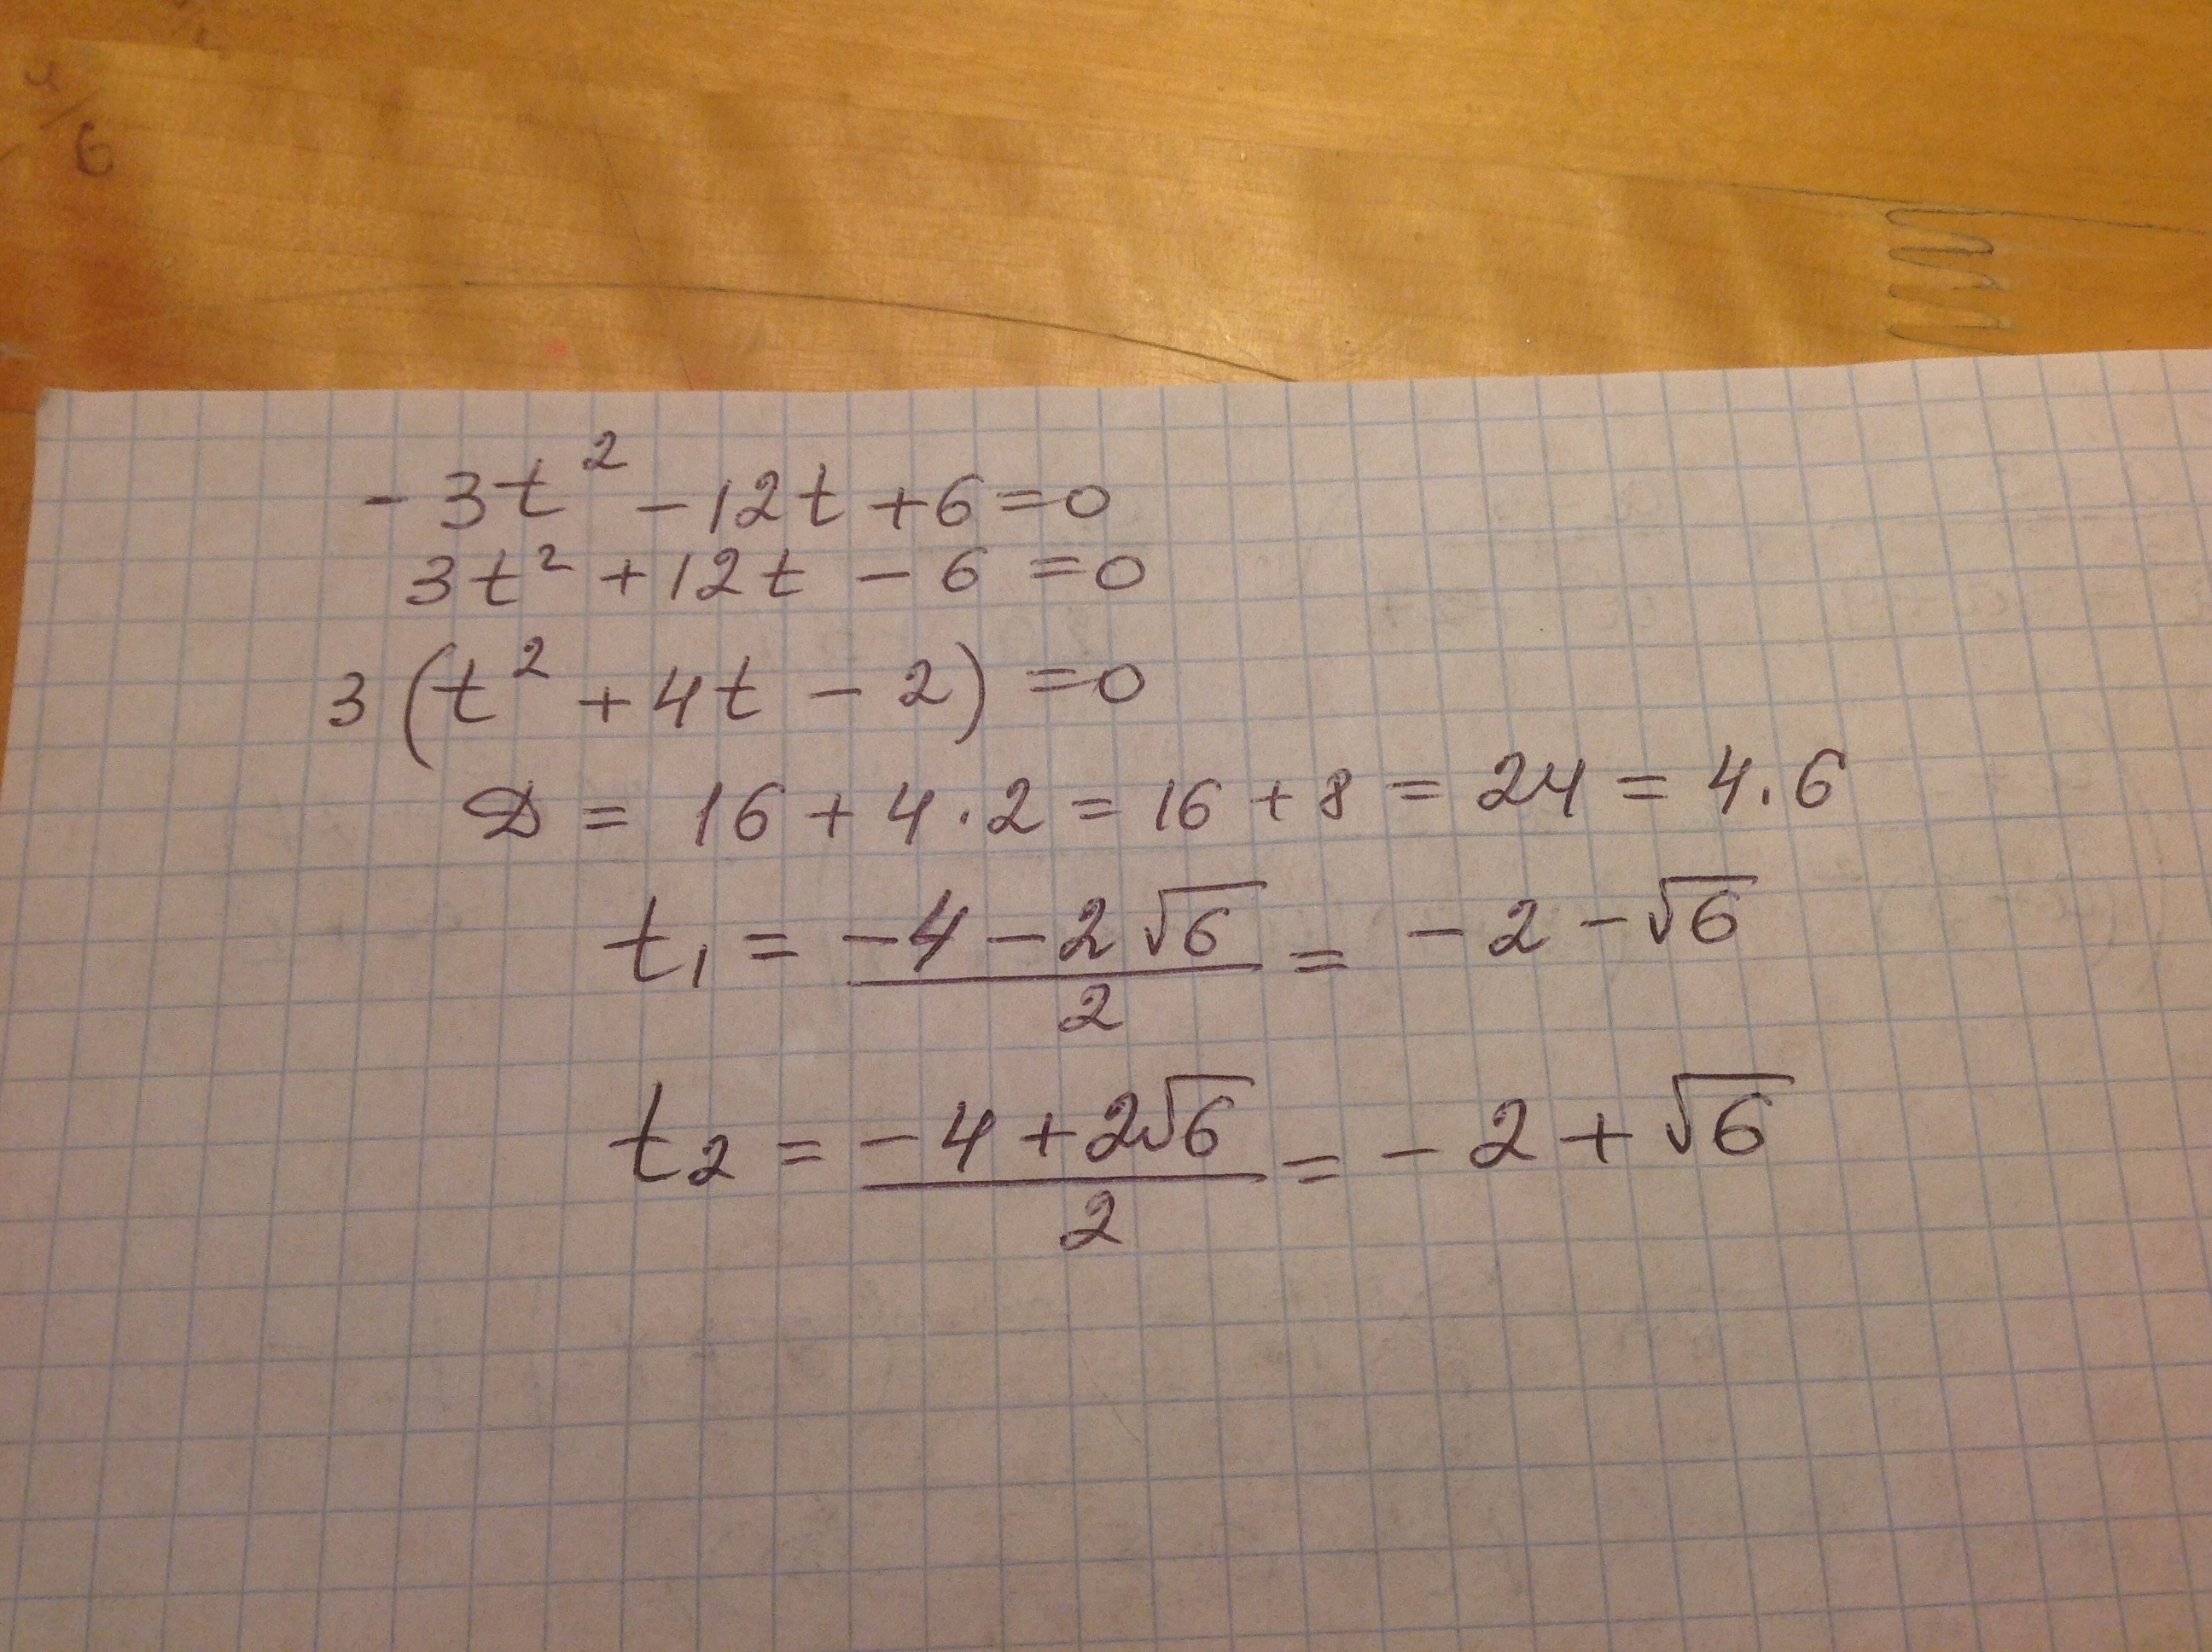 -3t² - 12t + 6 = 0
3t² + 12t - 6 = 0
3(t² + 4t - 2) = 0
D = 16 + 4·2 = 16 + 8 = 24 = 4·6
t₁ = (-4 - 2√6)/2 = -2 - √6
t₂ = (-4 + 2√6)/2 = -2 + √6